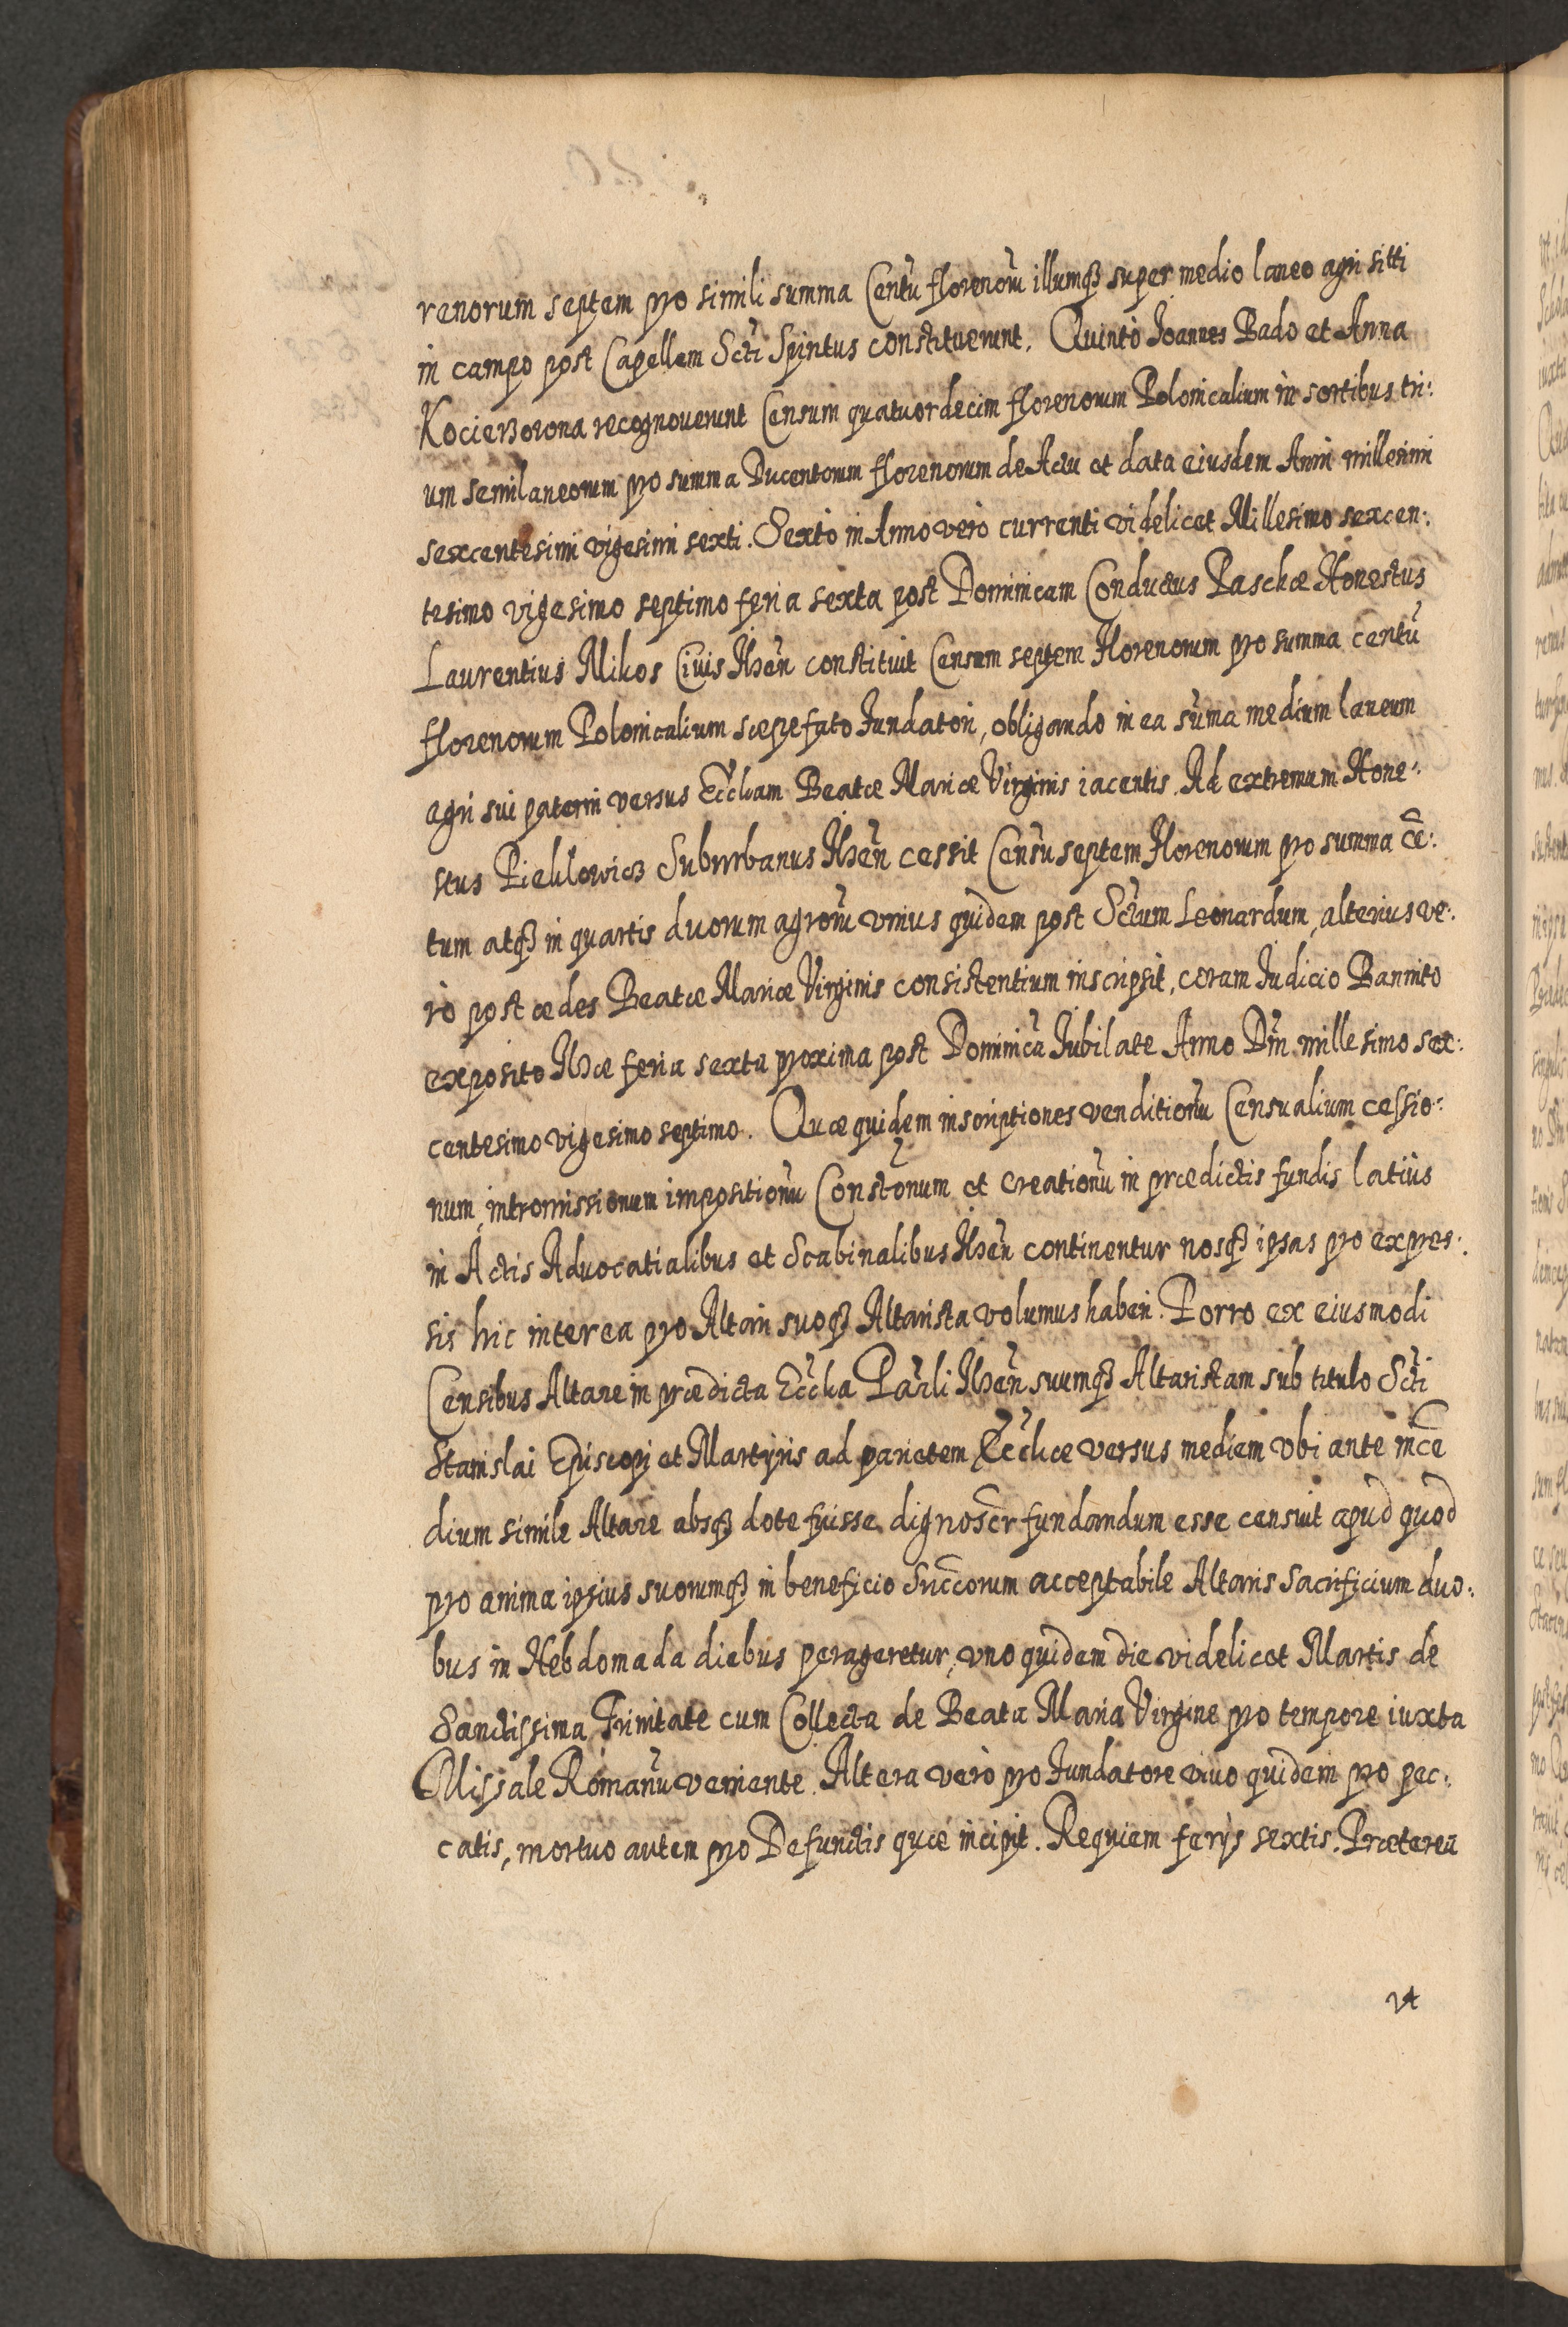 renorum septem pro simili summa Centũ florenorũ illumqȝ super medio laneo agri sitti
in campo post Capellam Scti Spiritus constituerunt. Quintò Joannes Bado et Anna
Kocierzowona recognouerunt Censum quatuordecim florenorum Polonicalium in sortibus tri:
um semilaneorum pro summa Ducentorum florenorum de Actu et data eiusdem Anni millesimi
sexcentesimi vigesimi sexti. Sextò in Anno verò currenti videlicet Millesimo sexcen:
tesimo vigesimo septimo feria sexta post Dominicam Conductus Paschæ Honestus
Laurentius Mikos Ciuis Ilzeñ constituit Censum septem Florenorum pro summa centũ
florenorum Polonicalium sæpefato Fundatori, obligando in ea sũma medium laneum
agri sui paterni versus Eccliam Beatæ Mariæ Virginis iacentis. Ad extremum Hone:
stus Pieklowicz Suburbanus Ilzeñ cessit Censũ septem Florenorum pro summa cẽ:
tum atqȝ in quartis duorum agrorũ vnius quidem post Sctum Leonardum, alterius ve:
rò post ædes Beatæ Mariæ Virginis consistentium inscripsit, coram Judicio Bannito
exposito Ilzæ feria sexta proxima post Dominicã Jubilate Anno Dñi millesimo sex:
centesimo vigesimo septimo. Quæ quidem inscriptiones venditionũ Censualium cessio:
num, intromissionum impositionũ Consc̃onum et creationũ in prædictis fundis latiùs
in Actis Aduocatialibus et Scabinalibus Ilzeñ continentur nosqȝ ipsas pro expres:
sis hic interea pro Altari suoqȝ Altarista volumus haberi. Porro ex eiusmodi
Censibus Altare in prædicta Ecclia Parlĩ Ilzeñ suumqȝ Altaristam sub titulo Scti
Stanislai Episcopi et Martyris ad parietem Ecclicæ versus mediam vbi ante incẽ
dium simile Altare absqȝ dote fuisse dignoscr̃ fundandum esse censuit apud quod
pro anima ipsius suorumqȝ in beneficio Succ̃orum acceptabile Altaris Sacrificium duo:
bus in Hebdomada diebus perageretur, vno quidem die videlicet Martis de
Sanctissima Trinitate cum Collecta de Beata Maria Virgine pro tempore iuxta
Missale Romanũ veniente. Altera verò pro Fundatore viuo quidem pro pec:
catis, mortuo autem pro Defunctis quæ incipit. Requiem ferijs sextis. Præterea
vt